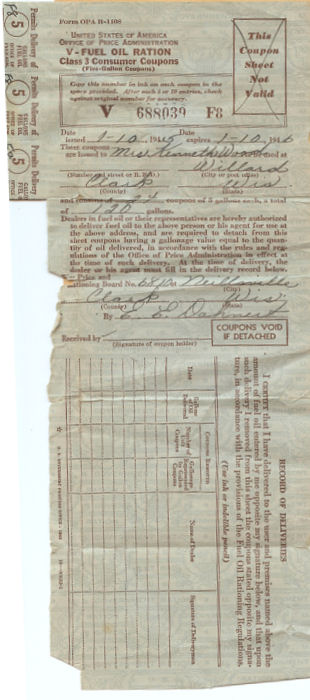 Form OPA R-1108
UNITED STATES OF AMERICA
OFFICE OF PRICE ADMINISTRATION
V - FUEL OIL RATION
Class 3 Consumer Coupons
(Five-Gallon Coupons)
Copy this number in ink on each coupon in the
space provided. After each 5 or 10 entries, check
against original number for accuracy.
V 688039 F8
This
Coupon
Sheet
Not
Valid
Permits Delivery of
5
GALLONS
FUEL OIL
Permits Delivery of
5
GALLONS
FUEL OIL
Permits Delivery of
5
GALLONS
FUEL OIL
Date issued 1-10 1945 Date expires 1-10-1946
These coupons
are issued to Mrs Kenneth Wood located at
Willard
(Number and street or R.F.D.) (City or post office)
Clark Wis
(County) (State)
and consist of 24 coupons of 5 gallons each, a total
of 120 gallons.
Dealers in fuel oil or their representatives are hereby authorized
to deliver fuel oil to the above person or his agent for use at
the above address, and are required to detach from this
sheet coupons having a gallonage value equal to the quan-
tity of oil delivered, in accordance with the rules and reg-
ulations of the Office of Price Administration in effect at
the time of such delivery. At the time of delivery, the
dealer or his agent must fill in the delivery record below.
Price and
tioning Board No. Neillsville
(City)
Clark Wis
(County) (State)
By
Received by
(Signature of coupon holder)
COUPONS VOID
IF DETACHED
RECORD OF DELIVERIES
I certify that I have delivered to the user and premises named above the
amount of fuel oil entered by me opposite my signature below, and that upon
such delivery I removed from this sheet the coupons stated opposite my signa-
ture, in accordance with the provisions of the Fuel Oil Rationing Regulations.
(Use ink or indelible pencil)
Date
Gallons of Oil Delivered
Coupons Removed
Number of Coupons
Gallonage Represented by Coupons
Name of Dealer
Signature of Deliveryman
U. S. GOVERNMENT PRINTING OFFICE